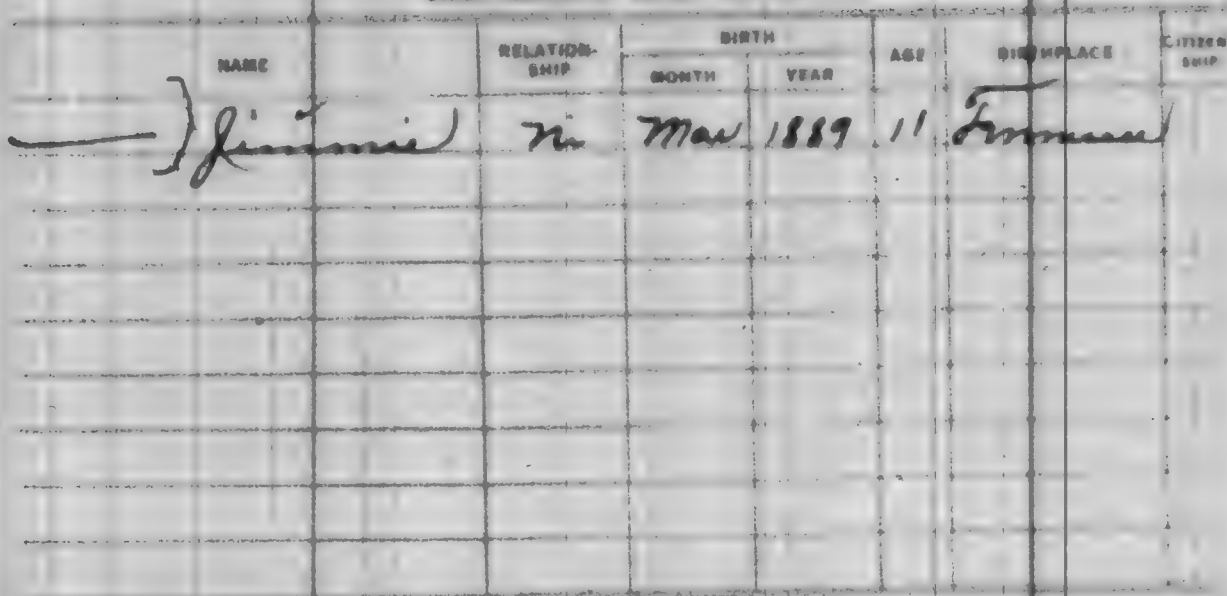 NAME RELATION-SHIP BIRTH MONTH YEAR AGE BIRTHPLACE CITIZEN SHIP
Jimmie Ni Mar 1889 11 Tennessee